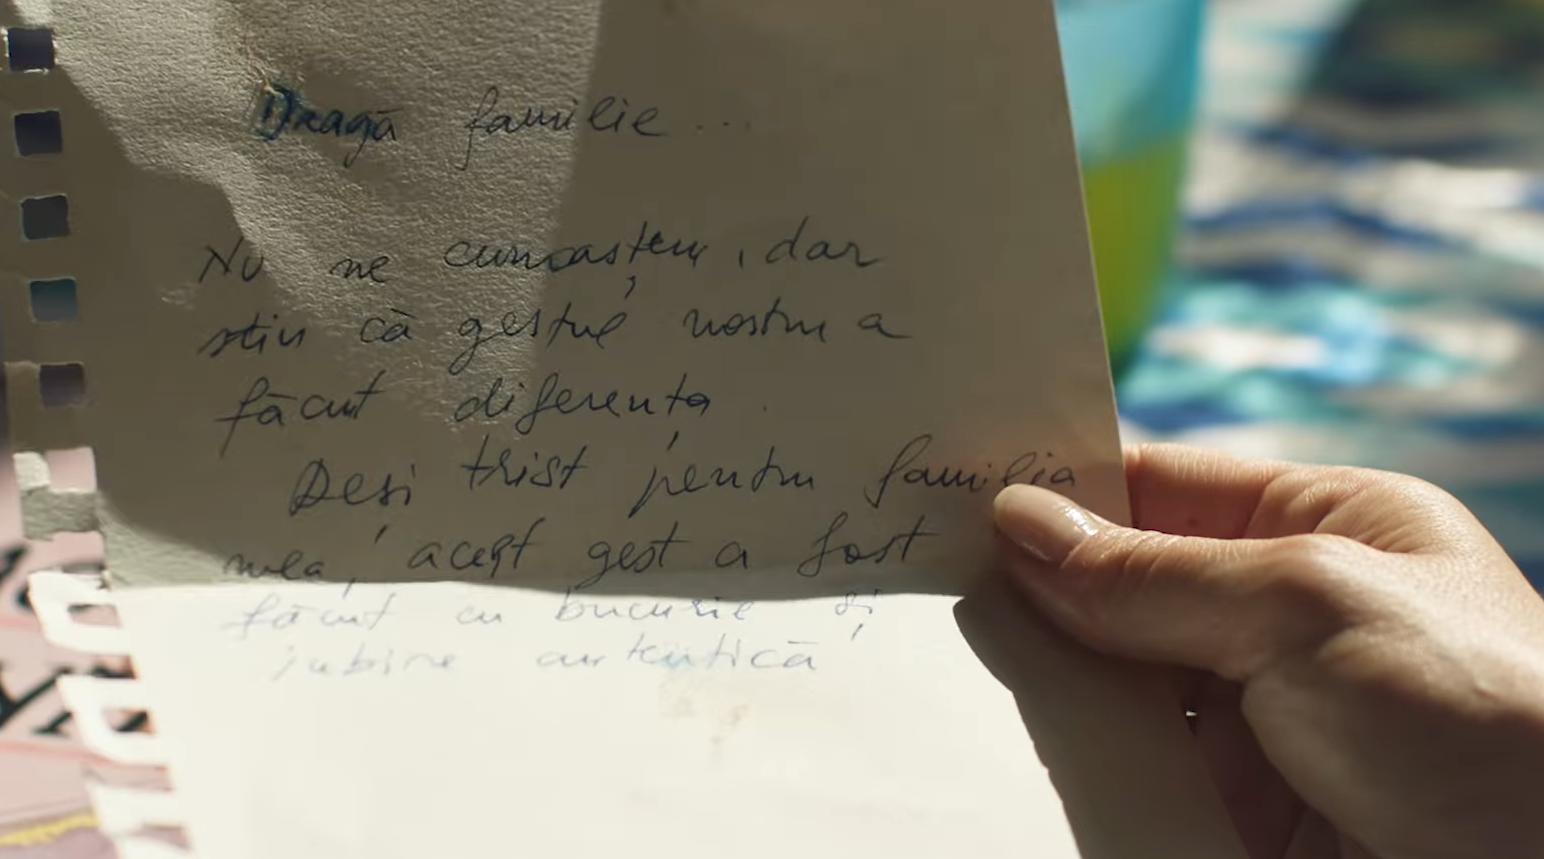 Dragă familie...
Nu ne cunoaștem, dar
știu că gestul nostru a
făcut diferența.
Deși trist pentru familia
mea, acest gest a fost
făcut cu bucurie și
iubire autentică